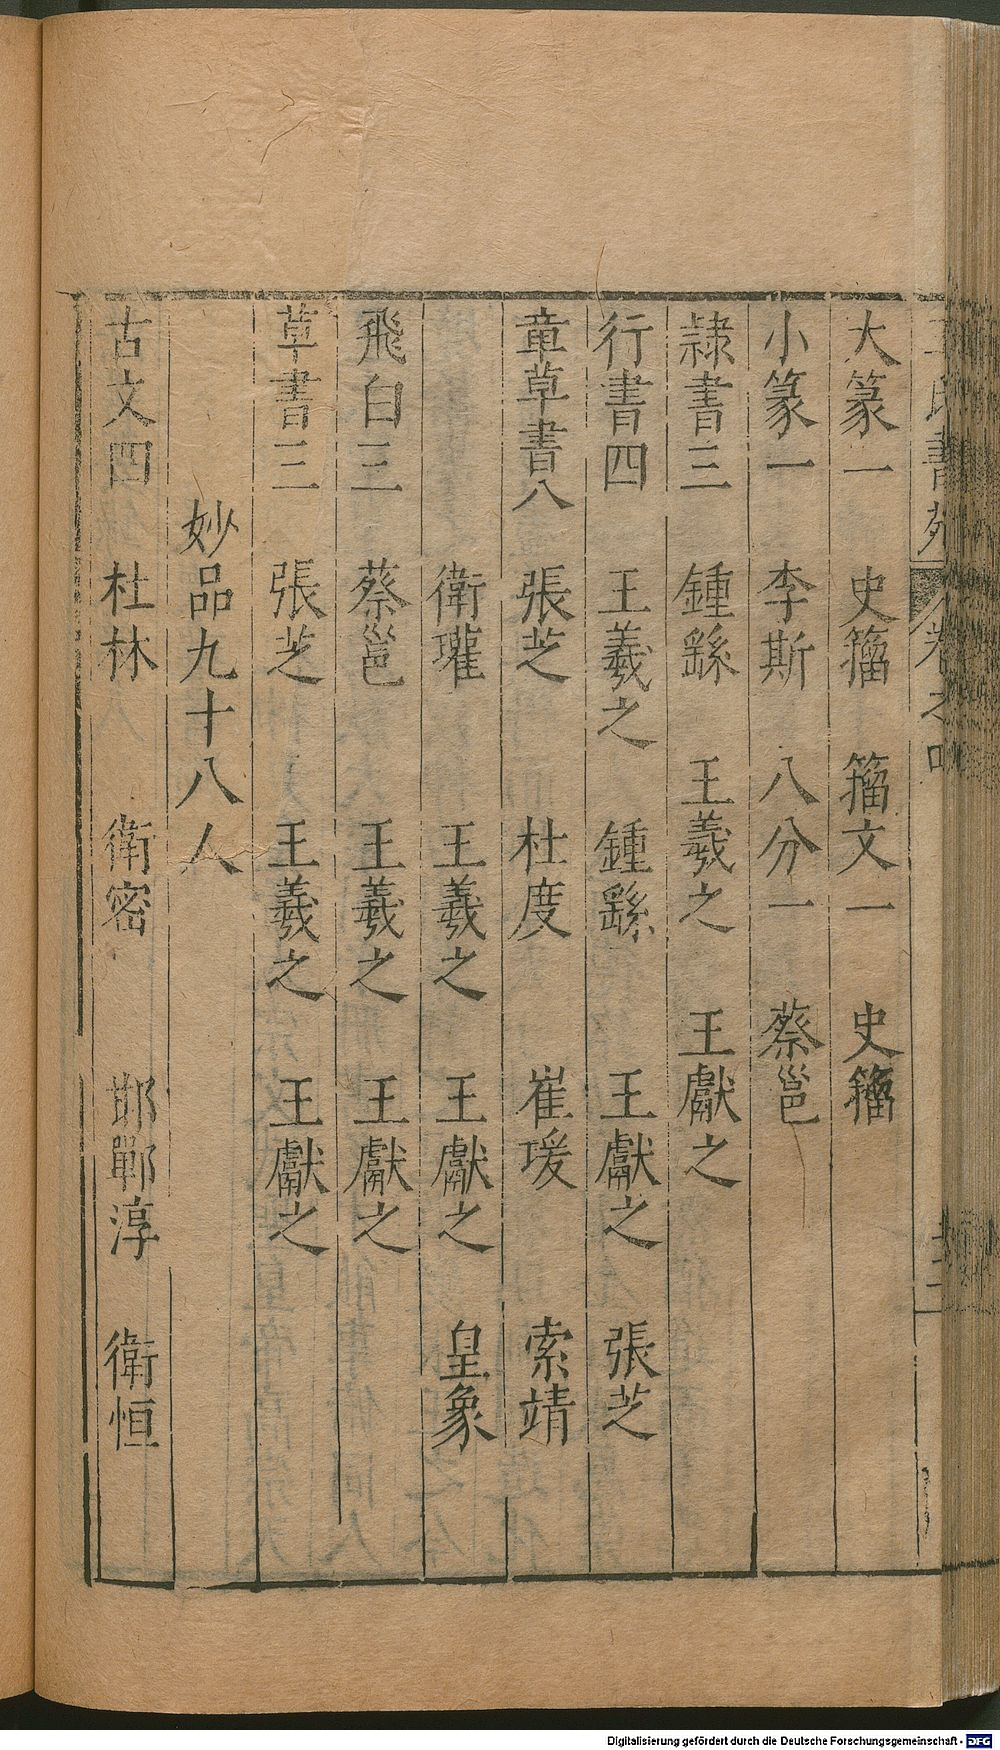 王氏書苑 卷之四
大篆一 史籀 籀文一 史籀
小篆一 李斯 八分一 蔡邕
隸書三 鍾繇 王羲之 王獻之
行書四 王羲之 鍾繇 王獻之 張芝
章草書八 張芝 杜度 崔瑗 索靖
衛瓘 王羲之 王獻之 皇象
飛白三 蔡邕 王羲之 王獻之
草書三 張芝 王羲之 王獻之
妙品九十八人
古文四 杜林 衛密 邯鄲淳 衛恒
Digitalisierung gefördert durch die Deutsche Forschungsgemeinschaft - DFG